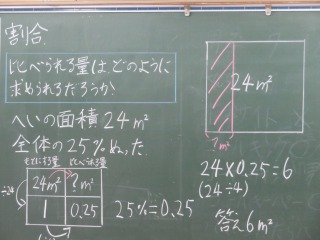 割合
比べられる量は、どのように
求められるだろうか?
へいの面積24m²
全体の25%ぬった
もとにする量 比べられる量
24m² ?m²
1 0.25
÷24
25%=0.25
24m²
?m²
24×0.25=6
(24÷4)
答え6m²